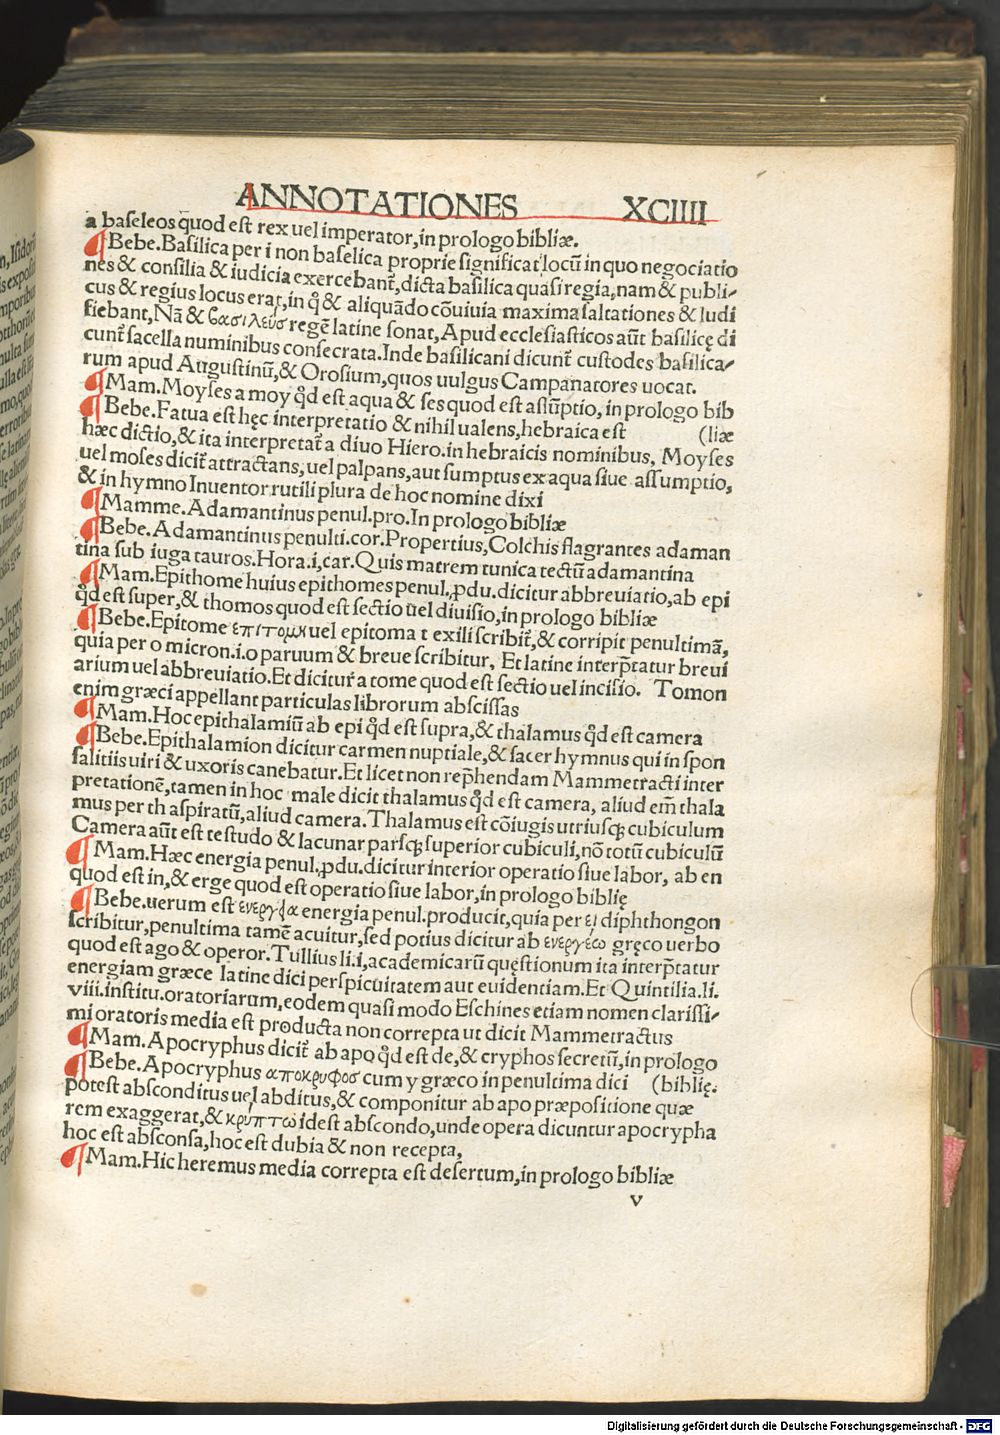 ANNOTATIONES XCIIII
a baſeleos quod eſt rex uel imperator,in prologo bibliæ.
¶Bebe.Baſilica per i non baſelica proprie ſignificat locū in quo negociatio
nes & conſilia & iudicia exercebant᷑,dicta baſilica quaſi regia,nam & publi⸗
cus & regius locus erat,in ꝙ & aliquādo cōuiuia maxima ſaltationes & ludi
fiebant,Nā & βασιλεύσ regē latine ſonat,Apud eccleſiaſticos aūt baſilicę di
cunt᷑ ſacella numinibus conſecrata.Inde baſilicani dicunt᷑ cuſtodes baſilica⸗
rum apud Auguſtinū,& Oroſium,quos uulgus Campanatores uocat.
¶Mam.Moyſes a moy qd̓ eſt aqua & ſes quod eſt aſſūptio, in prologo bib
¶Bebe.Fatua eſt hęc interpretatio & nihil ualens,hebraica eſt (liæ
hæc dictio,& ita interpretat᷑ a diuo Hiero.in hebraicis nominibus, Moyſes
uel moſes dicit᷑ attractans,uel palpans,aut ſumptus ex aqua ſiue aſſumptio,
& in hymno Inuentor rutili plura de hoc nomine dixi
¶Mamme.Adamantinus penul.pro.In prologo bibliæ
¶Bebe.Adamantinus penulti.cor.Propertius,Colchis flagrantes adaman
tina ſub iuga tauros.Hora.i,car.Quis matrem tunica tectū adamantina
¶Mam.Epithome huius epithomes penul.,ꝓdu.dicitur abbreuiatio,ab epi
qd̓ eſt ſuper,& thomos quod eſt ſectio uel diuiſio,in prologo bibliæ
¶Bebe.Epitome επιτομη uel epitoma t exili ſcribit᷑,& corripit penultimā,
quia per o micron.i.o paruum & breue ſcribitur, Et latine interp̄tatur breui
arium uel abbreuiatio.Et dicitur a tome quod eſt ſectio uel inciſio. Tomon
enim græci appellant particulas librorum abſciſſas
¶Mam.Hoc epithalamiū ab epi qd̓ eſt ſupra,& thalamus qd̓ eſt camera
¶Bebe.Epithalamion dicitur carmen nuptiale,& ſacer hymnus qui in ſpon
ſalitiis uiri & uxoris canebatur.Et licet non rep̄hendam Mammetracti inter
pretationē,tamen in hoc male dicit thalamus qd̓ eſt camera, aliud em̄ thala
mus per th aſpiratū,aliud camera.Thalamus eſt cōiugis utriuſqȝ cubiculum
Camera aūt eſt teſtudo & lacunar parſqȝ ſuperior cubiculi,nō totū cubiculū
¶Mam.Hæc energia penul.,ꝓdu.dicitur interior operatio ſiue labor, ab en
quod eſt in,& erge quod eſt operatio ſiue labor,in prologo biblię
¶Bebe.uerum eſt ενεργεια energia penul.producit,quia per ει diphthongon
ſcribitur,penultima tamē acuitur,ſed potius dicitur ab ενεργέω gręco uerbo
quod eſt ago & operor.Tullius li.i,academicarū quęſtionum ita interp̄tatur
energiam græce latine dici perſpicuitatem aut euidentiam.Et Quintilia.li.
viii.inſtitu.oratoriarum,eodem quaſi modo Eſchines etiam nomen clariſſi⸗
mi oratoris media eſt producta non correpta ut dicit Mammetractus
¶Mam.Apocryphus dicit᷑ ab apo qd̓ eſt de,& cryphos ſecretū,in prologo
¶Bebe.Apocryphus αποκρυφοσ cum y græco in penultima dici (biblię.
poteſt abſconditus uel abditus,& componitur ab apo præpoſitione quæ
rem exaggerat,& κρύπτω ideſt abſcondo,unde opera dicuntur apocrypha
hoc eſt abſconſa,hoc eſt dubia & non recepta,
¶Mam.Hic heremus media correpta eſt deſertum,in prologo bibliæ
v
Digitalisierung gefördert durch die Deutsche Forschungsgemeinschaft - DFG